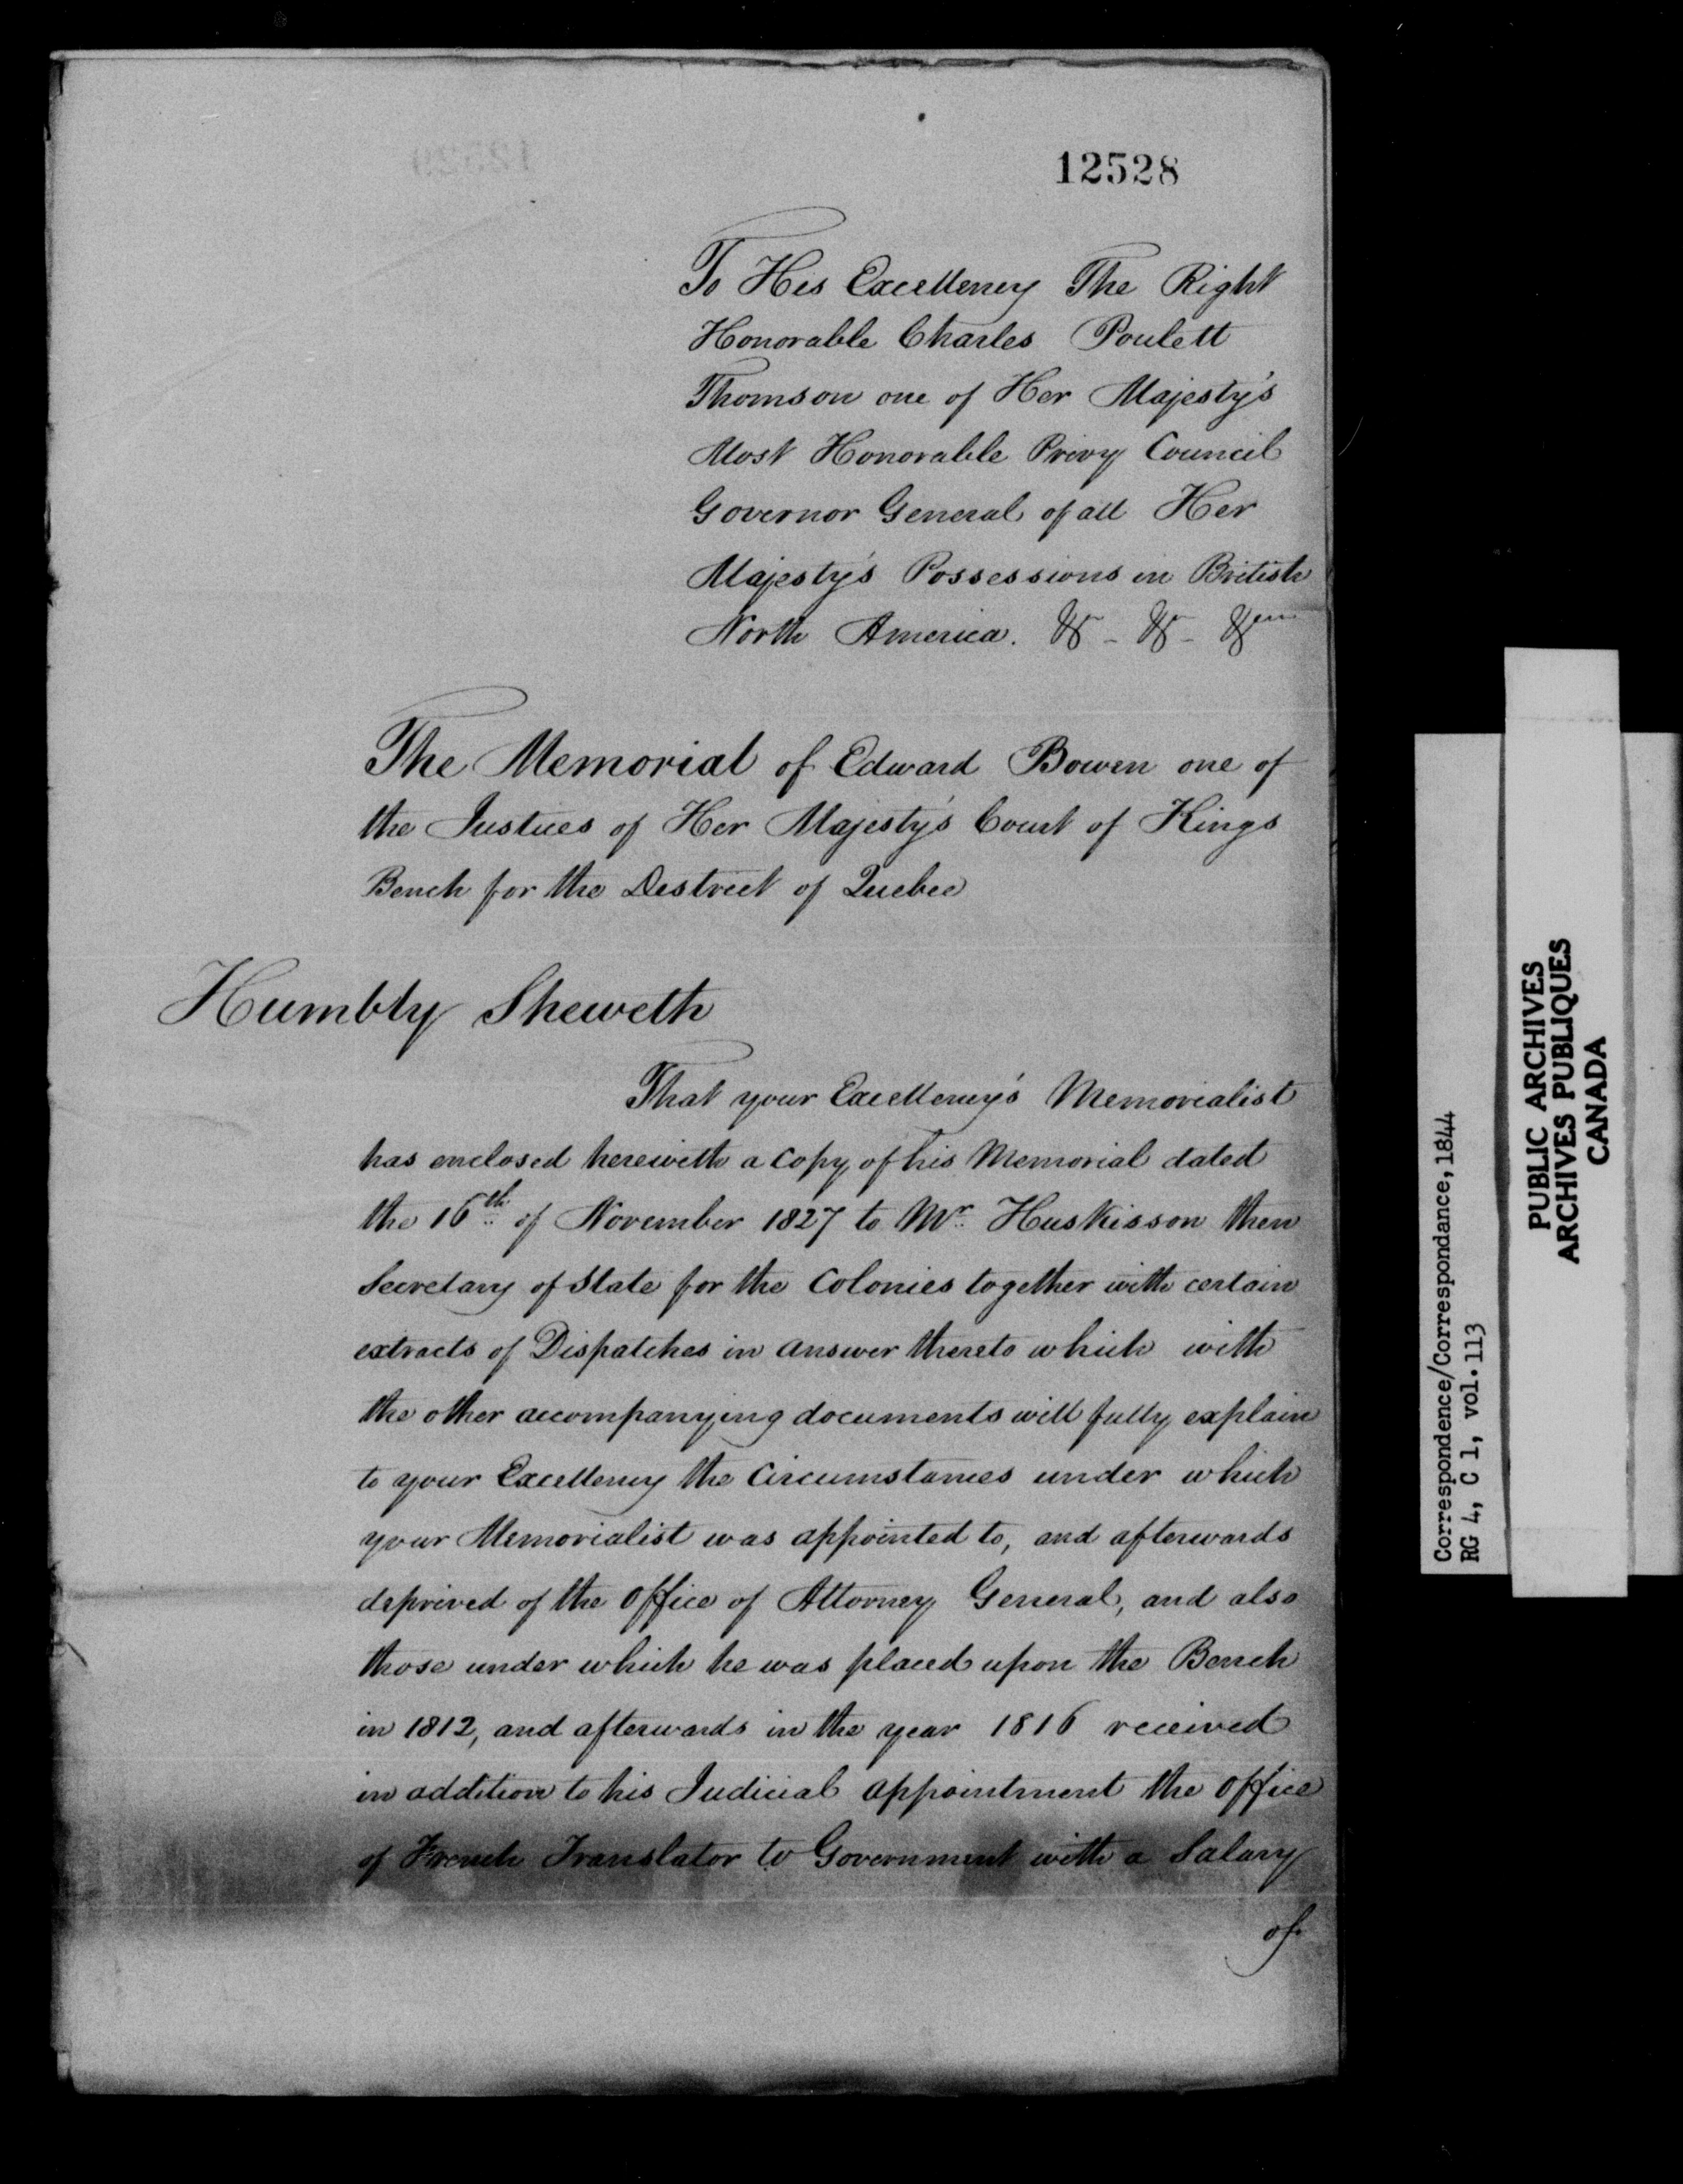 12528
To His Excellency The Right
Honorable Charles Poulett
Thomson one of Her Majesty's
Most Honorable Privy Council
Governor General of all Her
Majesty's Possessions in British
North America. & - & - &
The Memorial of Edward Bowen one of
the Justices of Her Majesty's Court of Kings
Bench for the District of Quebec
Humbly Sheweth
That your Excellency's Memorialist
has enclosed herewith a copy of his Memorial dated
the 16th of November 1827 to Mr. Huskisson then
Secretary of State for the Colonies together with certain
extracts of Dispatches in answer thereto which with
the other accompanying documents will fully explain
to your Excellency the Circumstances under which
your Memorialist was appointed to, and afterwards
deprived of the Office of Attorney General, and also
those under which he was placed upon the Bench
in 1812, and afterwards in the year 1816 received
in addition to his Judicial appointment the office
of French Translator to Government with a Salary
of
Correspondence/Correspondance, 1844
RG 4, C 1, vol. 113
PUBLIC ARCHIVES
ARCHIVES PUBLIQUES
CANADA